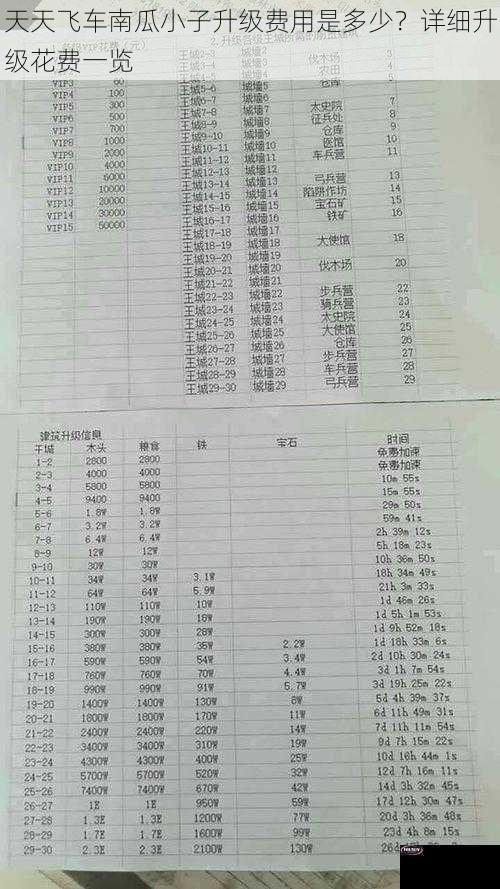 天天飞车南瓜小子升级费用是多少？详细升
级花费一览
VIP3 60
VIP5 300
VIP6 500
VIP7 700
VIP8 1000
VIP9 2000
VIP10 4000
VIP11 6000
VIP12 10000
VIP13 20000
VIP14 30000
VIP15 50000
王城2-3 城墙2
王城3-4 城墙3 伐木场 4
王城4-5 城墙4 农田
王城5-6 城墙5
王城6-7 城墙6 太史院 7
王城7-8 城墙7 征兵处 8
王城8-9 城墙8 仓库 9
王城9-10 城墙9 医馆 10
王城10-11 城墙10 车兵营 11
王城11-12 城墙11
王城12-13 城墙12 弓兵营 13
王城13-14 城墙13 陷阱作坊 14
王城14-15 城墙14 宝石矿 15
王城15-16 城墙15 铁矿 16
王城16-17 城墙16
王城17-18 城墙17 大使馆 18
王城18-19 城墙18
王城19-20 城墙19 伐木场 20
王城20-21 城墙20
王城21-22 城墙21 步兵营 22
王城22-23 城墙22 骑兵营 23
王城23-24 城墙23 太史院 24
王城24-25 城墙24 大使馆 25
王城25-26 城墙25 仓库 26
王城26-27 城墙26 步兵营 27
王城27-28 城墙27 车兵营 28
王城28-29 城墙28 弓兵营 29
王城29-30 城墙29
建筑升级信息
王城 木头 粮食 铁 宝石 时间
1-2 2800 2800 免费加速
2-3 4000 4000 免费加速
3-4 5800 5800 10m 55s
4-5 9400 9400 15m 55s
5-6 1.8W 1.8W 29m 50s
6-7 3.2W 3.2W 59m 41s
7-8 6.4W 6.4W 2h 39m 12s
8-9 12W 12W 5h 18m 23s
9-10 30W 30W 10h 36m 50s
10-11 34W 34W 3.1W 18h 34m 49s
11-12 64W 64W 5.9W 21h 3m 33s
12-13 110W 110W 10W 1d 46m 26s
13-14 160W 160W 16W 1d 5h 1m 53s
14-15 300W 300W 28W 1d 9h 52m 18s
15-16 380W 380W 35W 2.2W 1d 18h 33m 6s
16-17 590W 590W 54W 3.4W 2d 10h 30m 24s
17-18 760W 760W 70W 4.4W 3d 1h 7m 54s
18-19 990W 990W 91W 5.7W 3d 19h 25m 22s
19-20 1400W 1400W 130W 8W 5d 4h 39m 37s
20-21 1800W 1800W 170W 11W 6d 11h 49m 31s
21-22 2400W 2400W 220W 14W 7d 11h 11m 54s
22-23 3400W 3400W 310W 19W 9d 7h 15m 11s
23-24 4300W 4300W 400W 25W 10d 16h 44m 1s
24-25 5700W 5700W 520W 32W 12d 7h 16m 11s
25-26 7400W 7400W 670W 42W 14d 3h 32m 45s
26-27 1E 1E 950W 59W 17d 12h 30m 47s
27-28 1.3E 1.3E 1200W 77W 20d 3h 36m 48s
28-29 1.7E 1.7E 1600W 99W 23d 4h 8m 15s
29-30 2.3E 2.3E 2100W 130W 26d